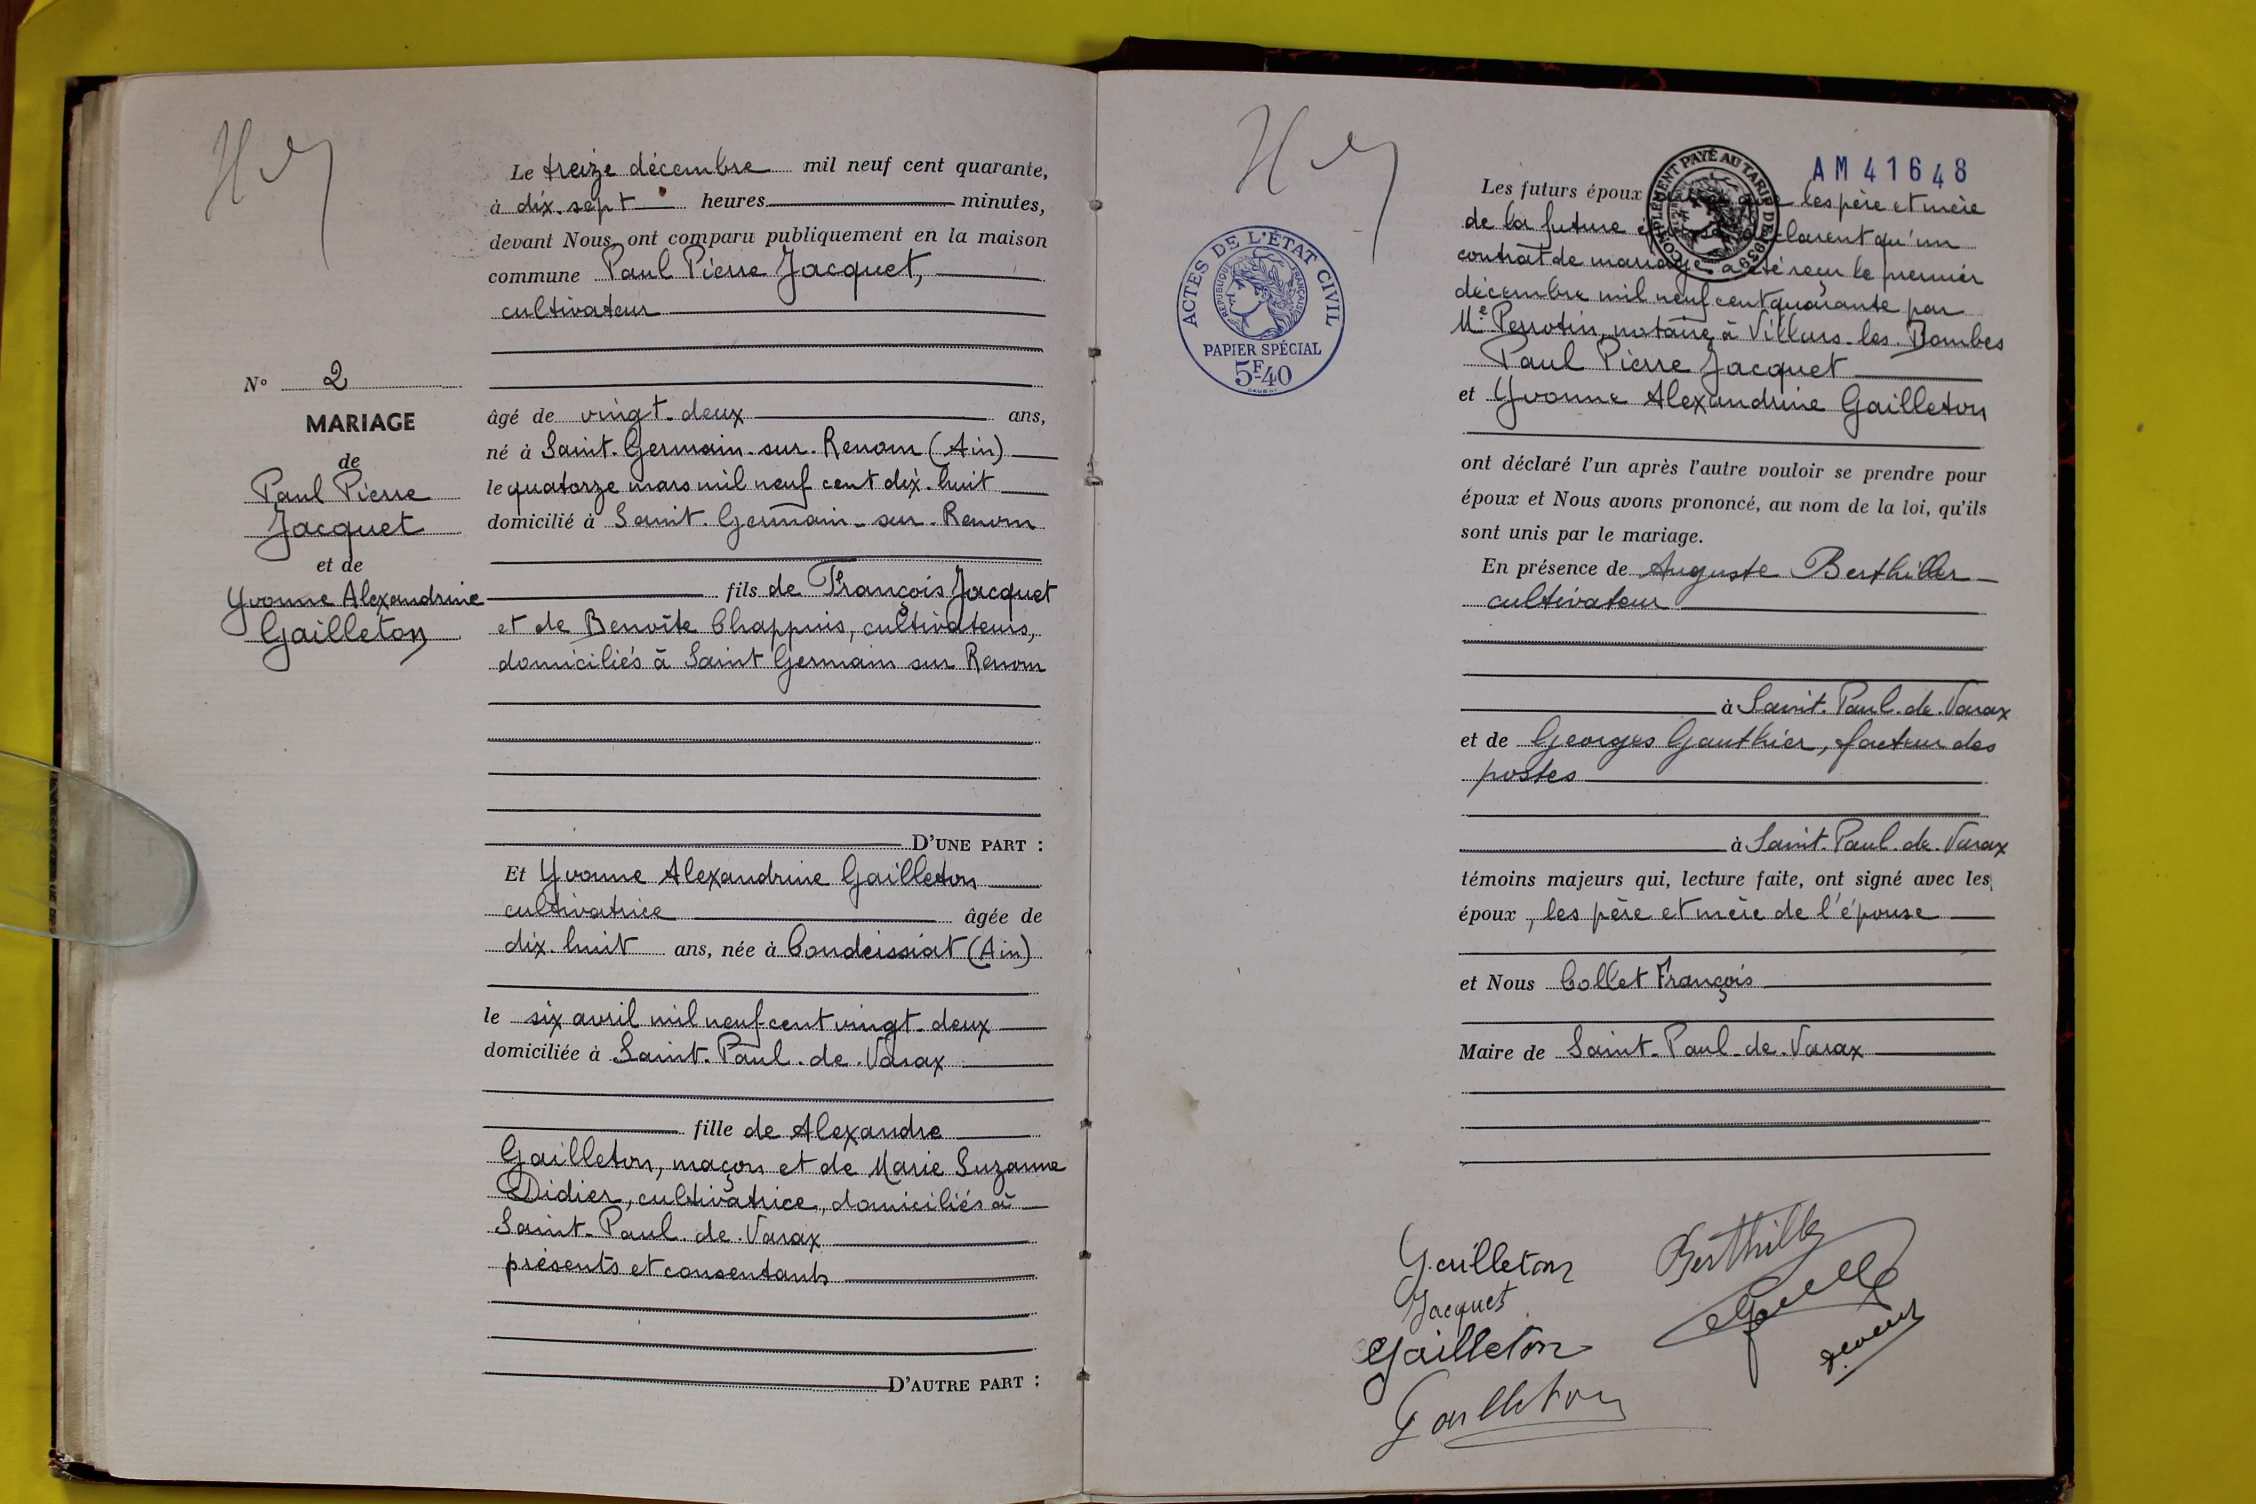 Le treize décembre mil neuf cent quarante,
à dix-sept heures minutes,
devant Nous ont comparu publiquement en la maison
commune Paul Pierre Jacquet,
cultivateur
N° 2
MARIAGE
de
Paul Pierre
Jacquet
et de
Yvonne Alexandrine
Gailleton
âgé de vingt-deux ans,
né à Saint-Germain-sur-Renom (Ain)
le quatorze mars mil neuf cent dix-huit
domicilié à Saint-Germain-sur-Renom
fils de François Jacquet
et de Benoîte Chappuis, cultivateurs,
domiciliés à Saint Germain sur Renom
D'UNE PART :
Et Yvonne Alexandrine Gailleton
cultivatrice âgée de
dix-huit ans, née à Condeissiat (Ain)
le six avril mil neuf cent vingt-deux
domiciliée à Saint-Paul-de-Varax
fille de Alexandre
Gailleton, maçon et de Marie Suzanne
Didier, cultivatrice, domiciliés à
Saint-Paul-de-Varax
présents et consentants
D'AUTRE PART :
AM 41648
COMPLÉMENT PAYÉ AU TARIF DE 1939
ACTES DE L'ÉTAT CIVIL
RÉPUBLIQUE FRANÇAISE
PAPIER SPÉCIAL
5F40
Les futurs époux les père et mère
de la future déclarent qu'un
contrat de mariage a été reçu le premier
décembre mil neuf cent quarante par
Me Perrotin, notaire à Villars-les-Dombes
Paul Pierre Jacquet
et Yvonne Alexandrine Gailleton
ont déclaré l'un après l'autre vouloir se prendre pour
époux et Nous avons prononcé, au nom de la loi, qu'ils
sont unis par le mariage.
En présence de Auguste Berthillier
cultivateur
à Saint-Paul-de-Varax
et de Georges Gauthier, facteur des
postes
à Saint-Paul-de-Varax
témoins majeurs qui, lecture faite, ont signé avec les
époux, les père et mère de l'épouse
et Nous Collet François
Maire de Saint-Paul-de-Varax
Gailleton
Jacquet
Gailleton
Gailleton